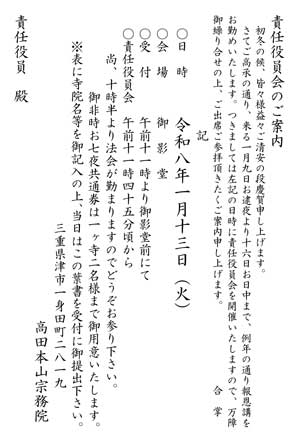 責任役員会のご案内
初冬の候、皆々様益々ご清安の段慶賀申し上げます。
さてご高承の通り、来る一月九日お逮夜より十六日お日中まで、例年の通り報恩講を
お勤めいたします。つきましては左記の日時に責任役員会を開催いたしますので、万障
御繰り合せの上、ご出席ご参拝頂きたくご案内申し上げます。
合掌
記
〇日時 令和八年一月十三日(火)
〇会場 御影堂
〇受付 午前十一時より御影堂前にて
〇責任役員会 午前十一時四十五分頃から
尚、十時半より法会が勤まりますのでどうぞお参り下さい。
御非時お七夜共通券は一ヶ寺二名様まで御用意いたします。
※表に寺院名等を御記入の上、当日はこの葉書を受付に御提出下さい。
三重県津市一身田町二八一九
高田本山宗務院
責任役員 殿